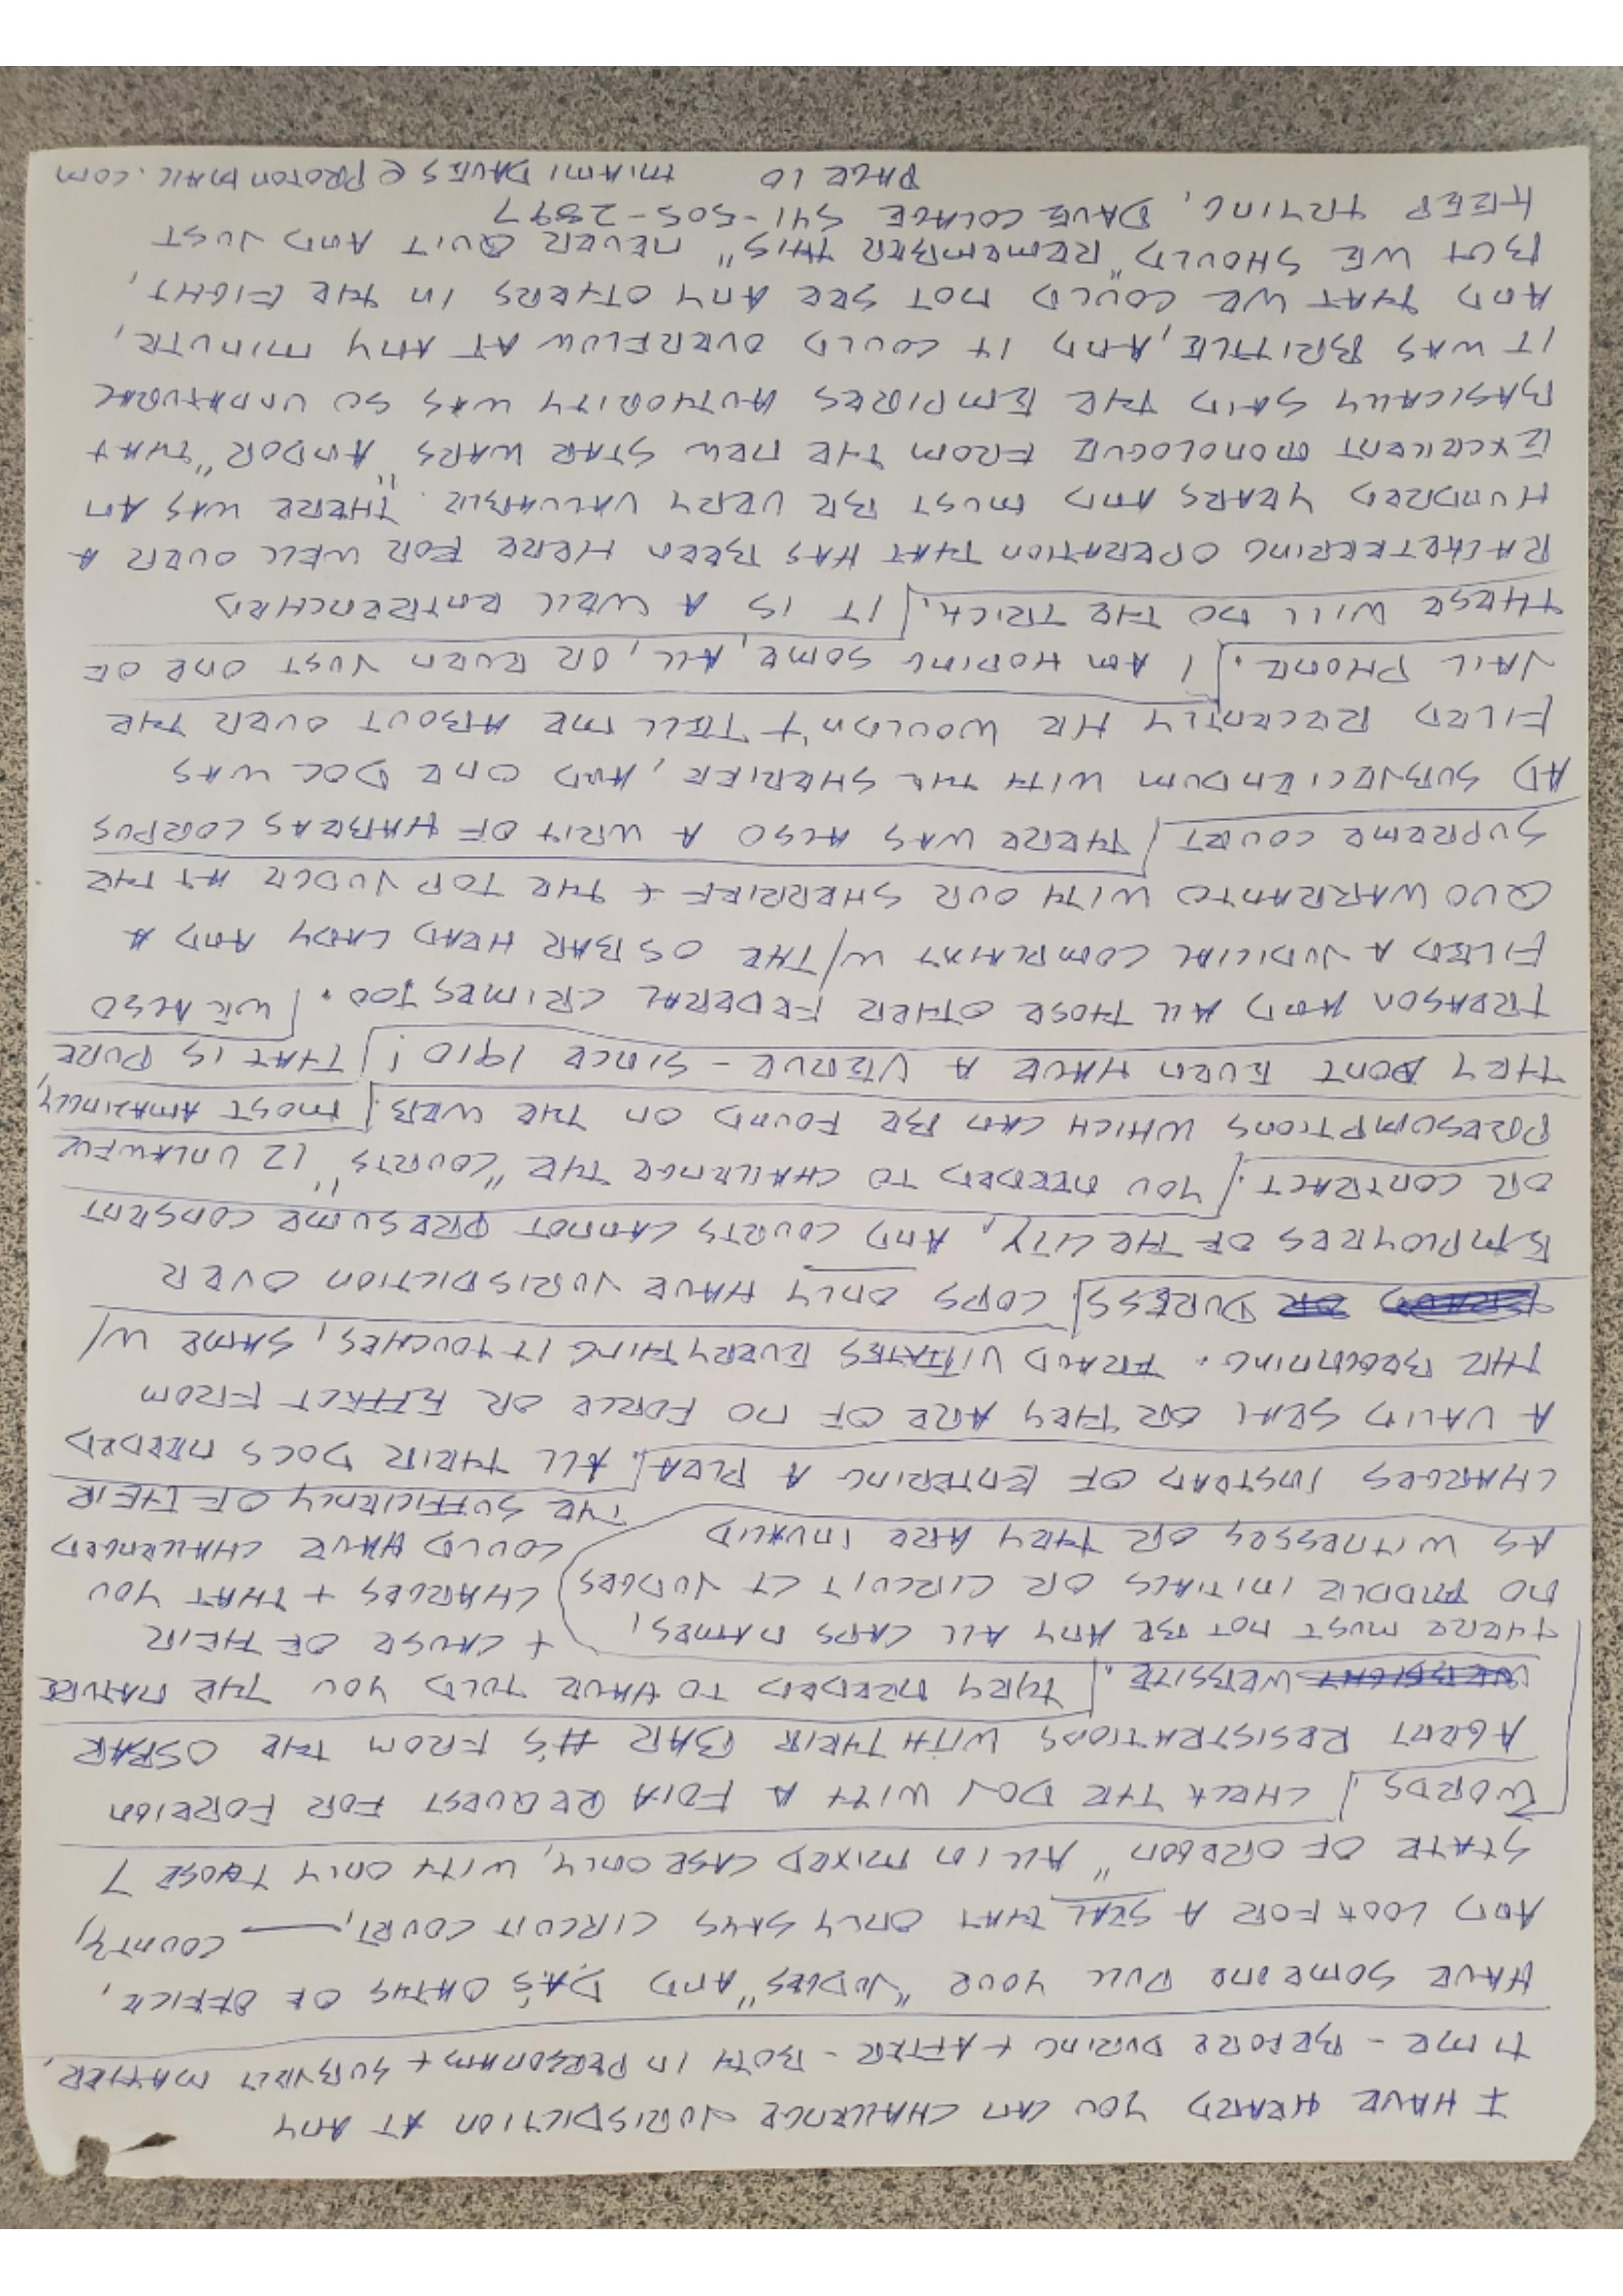 I HAVE HEARD YOU CAN CHALLENGE JURISDICTION AT ANY
TIME - BEFORE DURING + AFTER - BOTH IN PERSONAM + SUBJECT MATTER,
HAVE SOMEONE PULL YOUR "JUDGES" AND DA'S OATHS OF OFFICE,
AND LOOK FOR A SEAL THAT ONLY SAYS CIRCUIT COURT, ___ COUNTY,
STATE OF OREGON" ALL IN MIXED CASE ONLY, WITH ONLY THOSE 7
WORDS. CHECK THE DOJ WITH A FOIA REQUEST FOR FOREIGN
AGENT REGISTRATIONS WITH THEIR BAR #'S FROM THE OSBAR
WEBSIGHT WEBSITE. THEY NEEDED TO HAVE TOLD YOU THE NATURE
+ CAUSE OF THEIR
CHARGES + THAT YOU
COULD HAVE CHALLENGED
THE SUFFICIENCY OF THEIR
THERE MUST NOT BE ANY ALL CAPS NAMES,
NO MIDDLE INITIALS OR CIRCUIT CT JUDGES
AS WITNESSES OR THEY ARE INVALID
CHARGES INSTEAD OF ENTERING A PLEA. ALL THEIR DOCS NEEDED
A VALID SEAL OR THEY ARE OF NO FORCE OR EFFECT FROM
THE BEGINNING. FRAUD VITIATES EVERYTHING IT TOUCHES, SAME W/
FRAUD OR DURESS. COPS ONLY HAVE JURISDICTION OVER
EMPLOYEES OF THE CITY, AND COURTS CANNOT PRESUME CONSENT
OR CONTRACT. YOU NEEDED TO CHALLENGE THE "COURTS" 12 UNLAWFUL
PRESUMPTIONS WHICH CAN BE FOUND ON THE WEB. MOST AMAZINGLY,
THEY DONT EVEN HAVE A VENUE - SINCE 1910! THAT IS PURE
TREASON AND ALL THOSE OTHER FEDERAL CRIMES TOO. WE ALSO
FILED A JUDICIAL COMPLAINT W/ THE OSBAR HEAD LADY AND A
QUO WARRANTO WITH OUR SHERRIFF + THE TOP JUDGE AT THE
SUPREME COURT THERE WAS ALSO A WRIT OF HABEAS CORPUS
AD SUBJECIENDUM WITH THE SHERIFF, AND ONE DOC WAS
FILED RECENTLY HE WOULDN'T TELL ME ABOUT OVER THE
JAIL PHONE. I AM HOPING SOME, ALL, OR EVEN JUST ONE OF
THESE WILL DO THE TRICK. IT IS A WELL ENTRENCHED
RACKETEERING OPERATION THAT HAS BEEN HERE FOR WELL OVER A
HUNDRED YEARS AND MUST BE VERY VALUABLE. THERE WAS AN
EXCELLENT MONOLOGUE FROM THE NEW STAR WARS "ANDOR" THAT
BASICALLY SAID THE EMPIRES AUTHORITY WAS SO UNNATURAL
IT WAS BRITTLE, AND IT COULD OVERFLOW AT ANY MINUTE,
AND THAT WE COULD NOT SEE ANY OTHERS IN THE FIGHT,
BUT WE SHOULD "REMEMBER THIS" NEVER QUIT AND JUST
KEEP TRYING, DAVE COLAGE 541-505-2897
PAGE 10 MIAMI DAVES@PROTONMAIL.COM